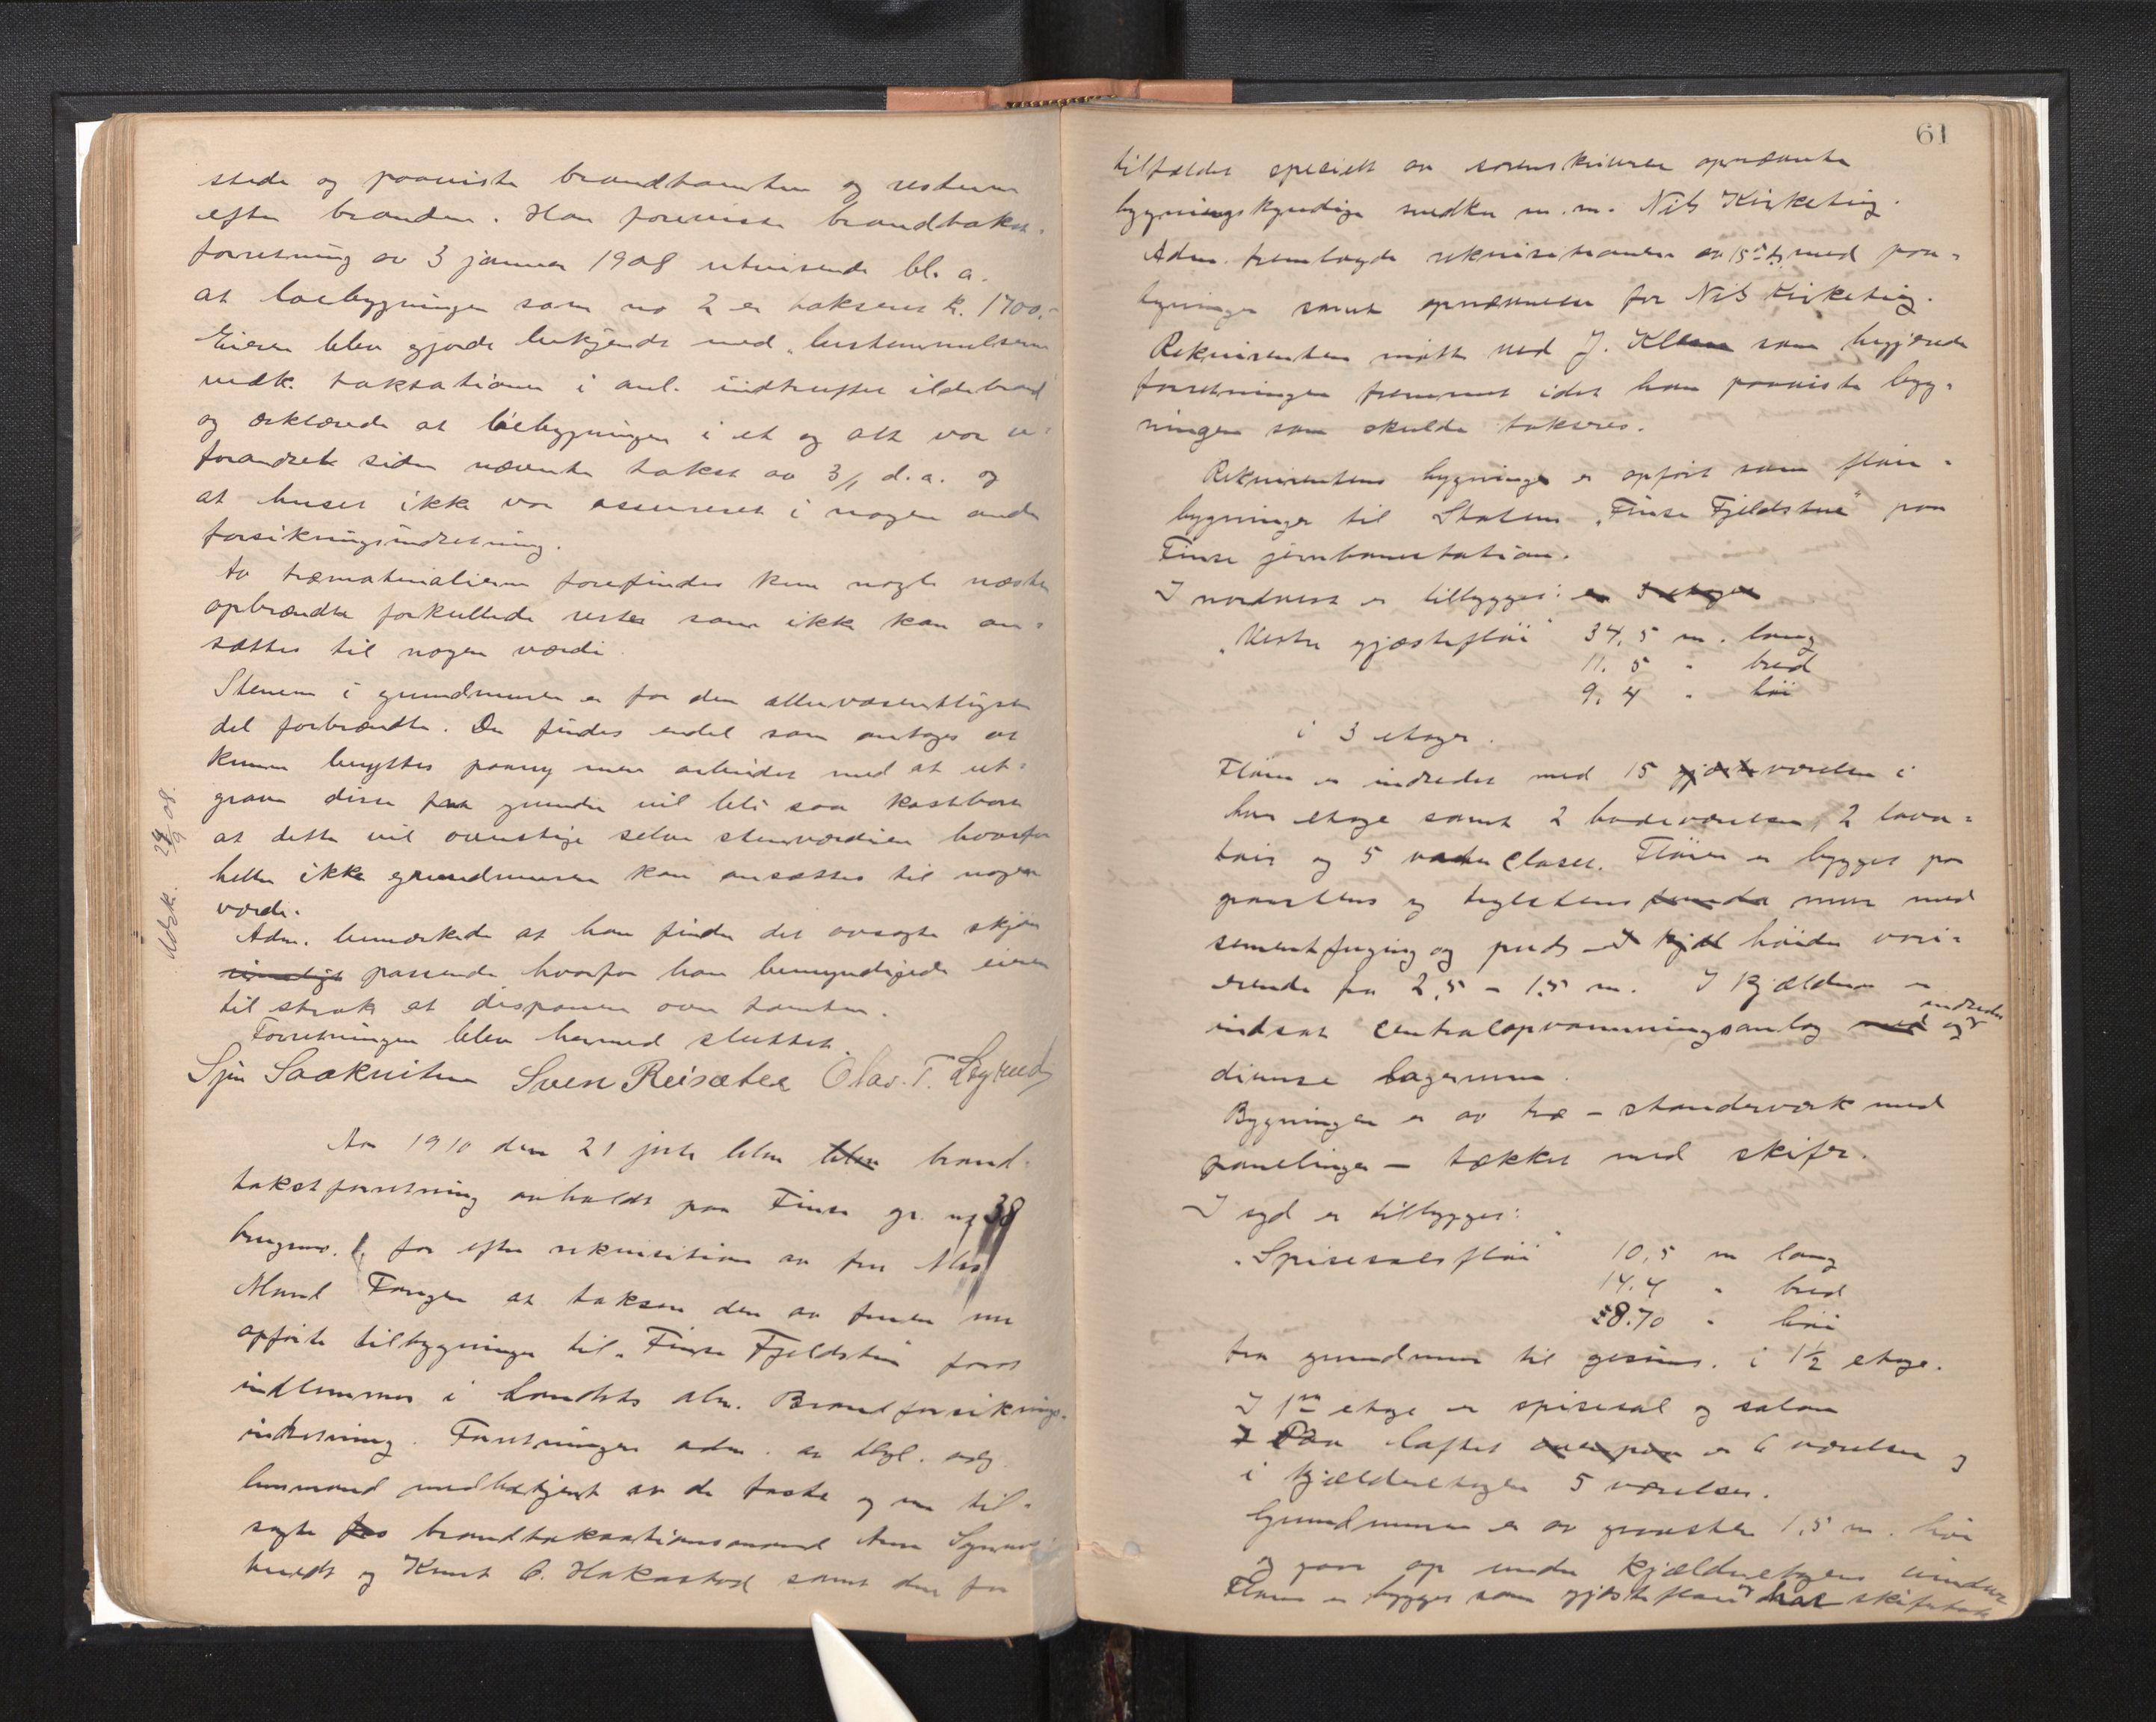 stede og paaviste brandtomten og resterne
efter branden. Han foreviste brandtakst-
forretning av 3 januar 1908 utvisende bl. a.
at løebygningen som no 2 er takseret kr. 1700.-
Eieren blev gjorde bekjendt med bestemmelserne
vedk. taksationer i anl. indtruffet ildebrand
og erklærede at løebygningen i et og alt var u-
forandret siden nævnte takst av 3/1 d. a. og
at huset ikke var assureret i nogen anden
forsikringsindretning.
Av træmaterialierne forefindes kun nogle næsten
opbrændte forkullede rester som ikke kan an-
sættes til nogen værdi.
Stenene i grundmuren er for den allervæsentligste
del forbrændte. Der findes endel som antages at
kunne benyttes paany men arbeidet med at ut-
grave disse fra grunden vil bli saa kostbart
at dette vil overstige selve stenværdien hvorfor
heller ikke grundmuren kan ansættes til nogen
værdi.
Adm. bemærkede at han finder det avsagte skjøn
rimeligt passende hvorfor han bemyndigede eieren
til straks at disponere over tomten.
Forretningen blev hermed sluttet.
Sjur Sven Reisæter Olav. T.
Utsk. 24/9 08.
Aar 1910 den 21 juli blev blev brand-
takstforretning avholdt paa Finse gr. no 38
brugsno. 1, for efter rekvisition av fru
Fangen at taksere den av fruen nu
opførte tilbygninger til "Finse Fjeldstue" forat
indlemmes i Landets alm. Brandforsikrings-
indretning. Forretningen adm. av
lensmand medbetjent av de faste og nu til-
sagte for brandtaksationsmænd
og Knut O. samt den for
61
tilfældet specielt av sorenskriveren opnævnte
bygningskyndige snedker m. m. Nils Kirketeig.
Adm. fremlagde rekvisitionen av 15de ds. med paa-
tegninger samt opnævnelse for Nils Kirketeig.
Rekvirenten møtte ved J. Klem som begjærede
forretningen fremmet idet han paaviste byg-
ningen som skulde takseres.
Rekvirentens bygninger er opført som fløi-
bygninger til Statens "Finse Fjeldstue" paa
Finse jernbanestation.
I nordvest er tilbygget: en 3 etages
"Vestre gjæstefløi" 34,5 m. lang
11,5 " bred
9,4 " høi
i 3 etager.
Fløien er indredet med 15 gjæsteværelser i
hver etage samt 2 badeværelser, 2 lava-
toir og 5 vater closet. Fløien er bygget paa
graastens og teglstens mur med
sementfuging og puds - høide vari-
erende fra 2,5 - 1,5 m. I kjælderen er
indsat centralopvarmningsanlæg med og indredet
diverse lagerrum.
Bygningen er av træ - standerverk med
panelinger - tækket med skifer.
I syd er tilbygget:
"Spisesalsfløi" 10,5 m lang
14.4 " bred
8.70 " høi
fra grundmur til gesims. i 1½ etage.
I 1ste etage er spisesal og salon
Paa loftet er 6 værelser og
i kjælderetagen 5 værelser.
Grundmuren er av graasten 1,5 m. høi
og gaar op under kjælderetagens vinduer
Fløien er bygget som gjæstefløien og har skifertak